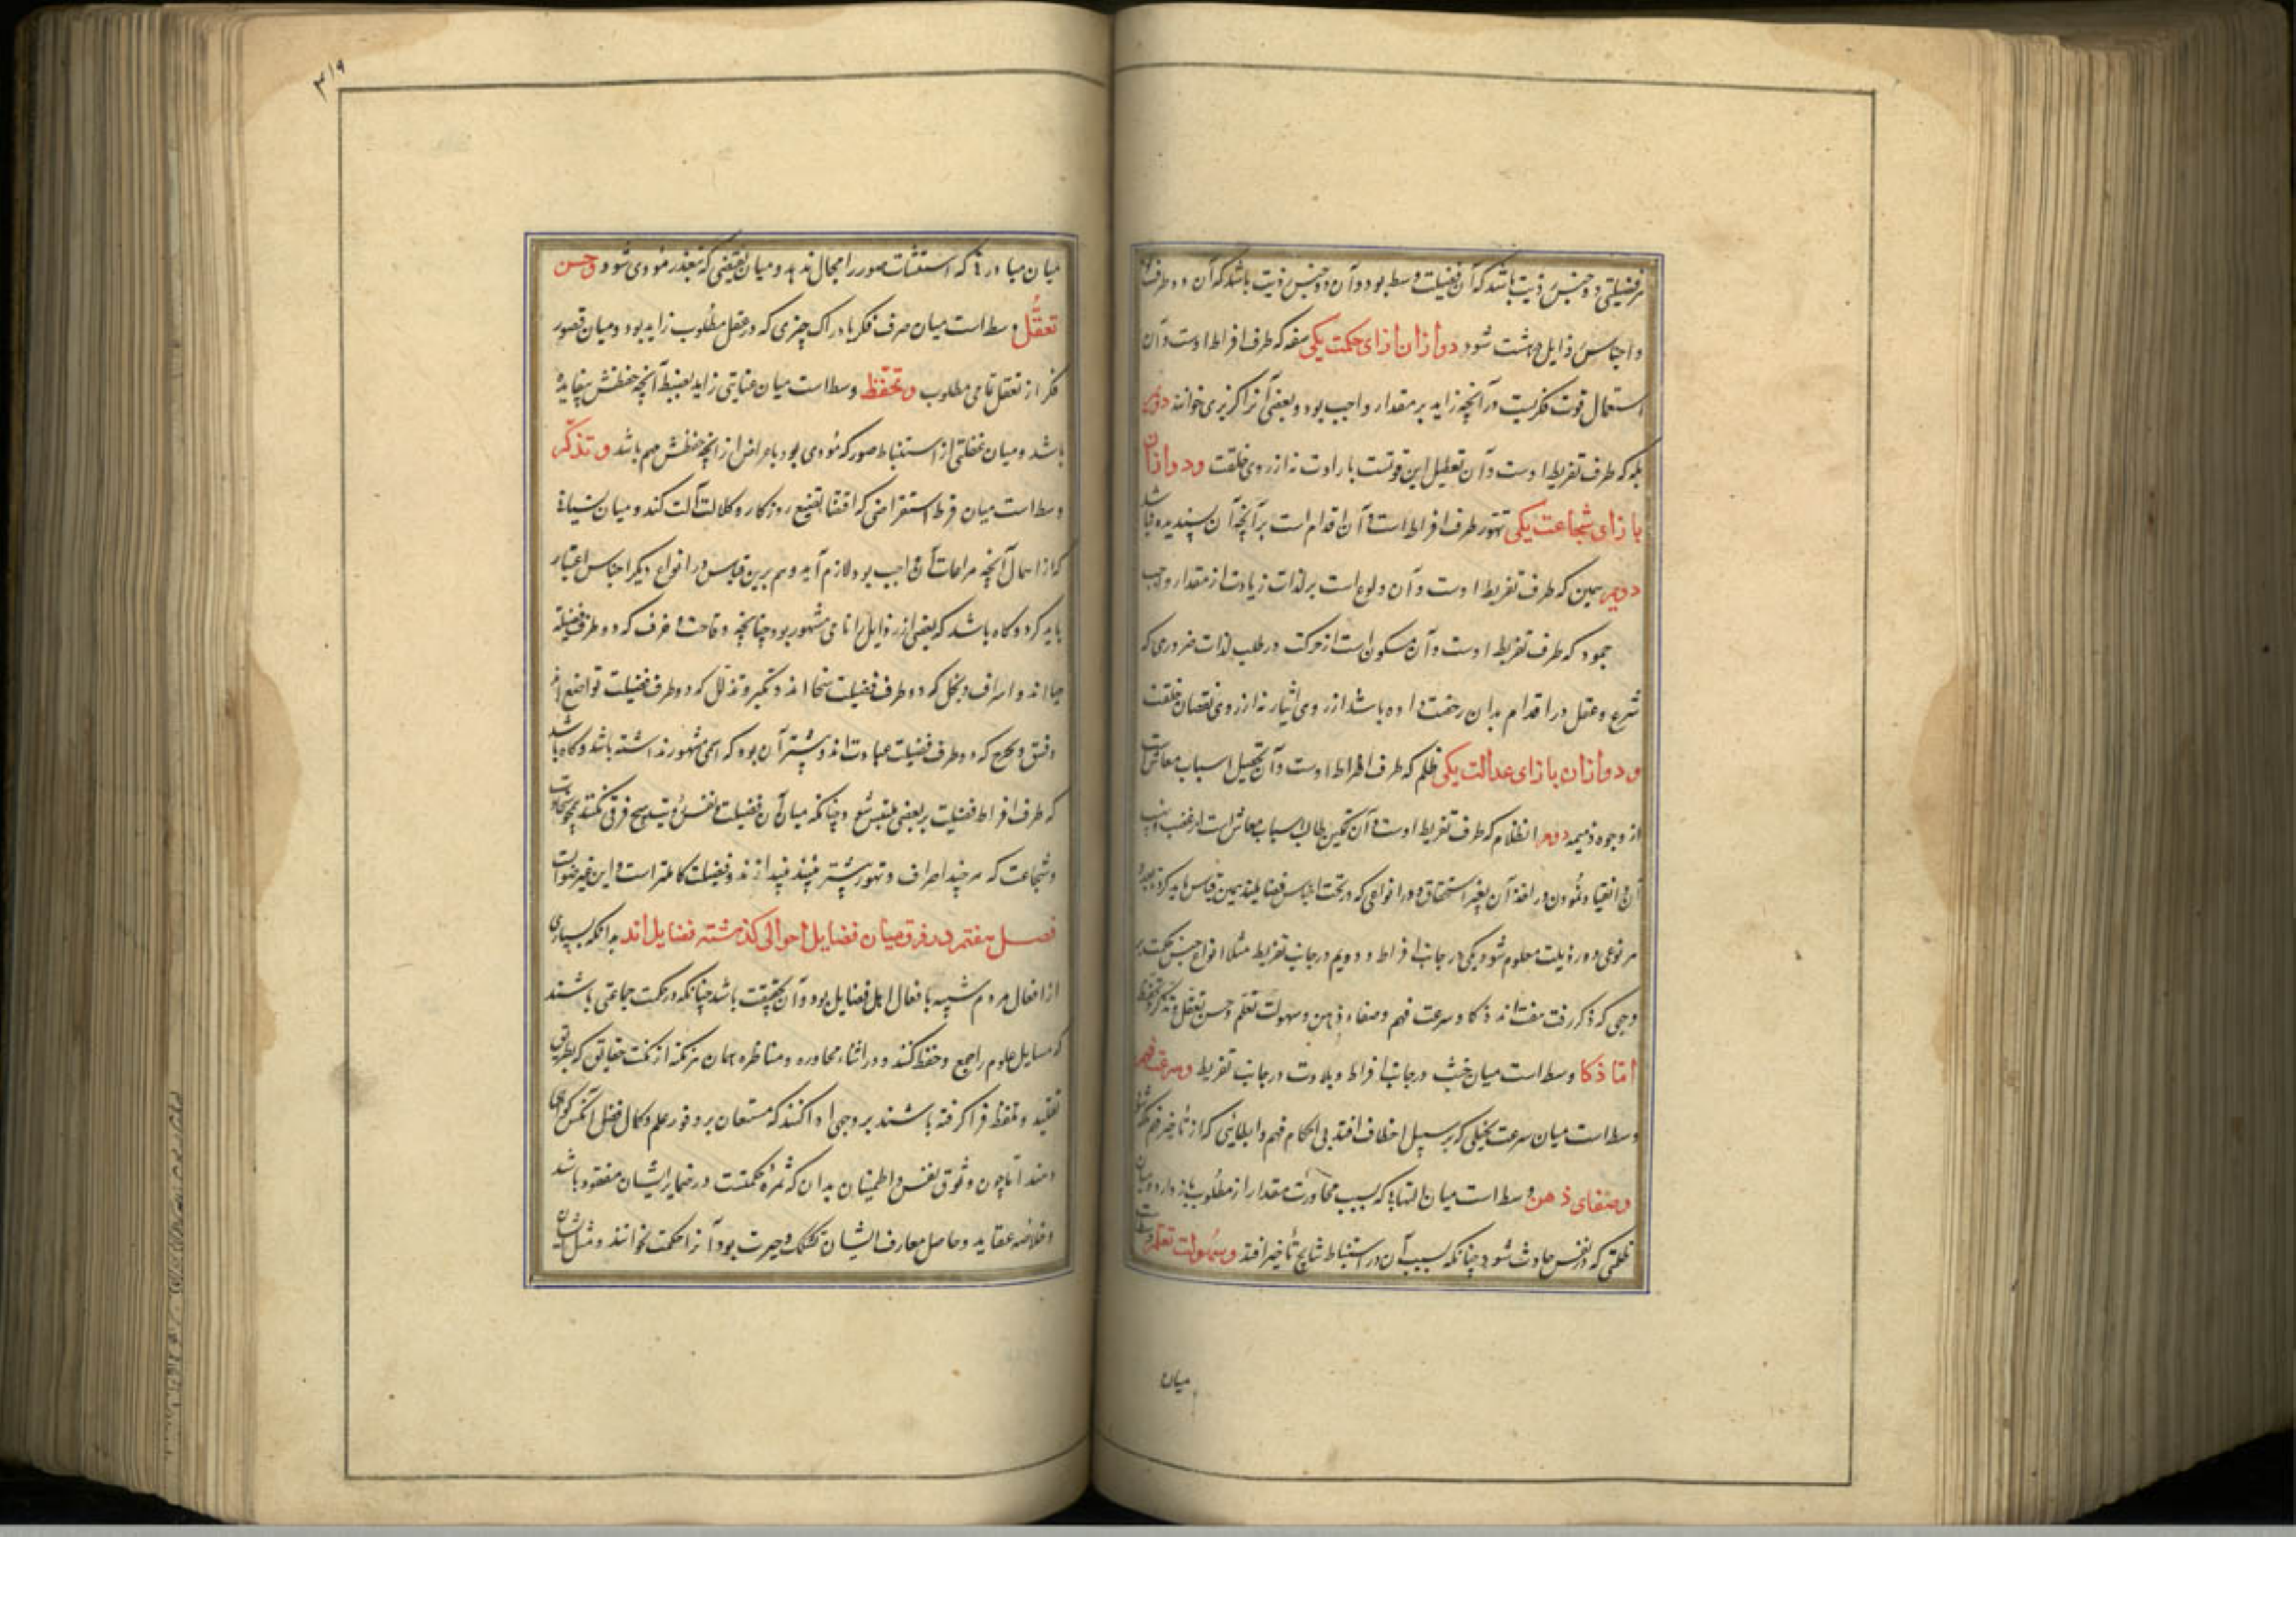 هر فضیلتی دو جنس رذیلت باشد که آن فضیلت وسط بود و آن دو جنس رذیلت باشد که آن دو طرف
و اجناس رذایل هشت شود دو ازان ازای حکمت یکی سفه که طرف افراط اوست و آن
استعمال قوت فکریست در آنچه زاید بر مقدار واجب بود و بعضی آنرا کربزی خوانند دویم
بله که طرف تفریط اوست و آن تعطیل این قوتست بارادت نه از روی خلقت و دو ازان
بازای شجاعت یکی تهور طرف افراط است و آن اقدام است بر آنچه آن پسندیده نباشد
دویم همین که طرف تفریط اوست و آن ولوع است بر لذات زیادت از مقدار واجب
جمود که طرف تفریط اوست و آن سکون است از حرکت در طلب لذات ضروری که
شرع و عقل در اقدام بدان رخصت داده باشد از روی ایثار نه از روی نقصان خلقت
و دو ازان بازای عدالت یکی ظلم که طرف افراط اوست و آن تحصیل اسباب معاش است
از وجوه ذمیمه دوم انظلام که طرف تفریط اوست و آن تمکین طالب اسباب معاش است از غصب و نهب
آن و انقیاد نمودن در اخذ آن بغیر استحقاق و در انواعی که در تحت اجناس فضایلند همین قیاس باید کرد
هر نوعی دو رذیلت معلوم شود یکی در جانب افراط و دویم در جانب تفریط مثلا انواع جنس حکمت بر
وجهی که ذکر رفت هفت‌اند ذکا و سرعت فهم و صفاء ذهن و سهولت تعلم و حسن تعقل و تذکر و تحفظ
اما ذکا وسط است میان خبث در جانب افراط و بلادت در جانب تفریط و سرعت فهم
وسط است میان سرعت تخیلی که بر سبیل اختطاف افتد بی احکام فهم و ابطایی که از تاخیر فهم
و صفای ذهن وسط است میان التهابی که بسبب مجاورت مقدار از مطلوب باز دارد و میان
ظلمتی که در نفس حادث شود چنانکه بسبب آن در استنباط نتایج تأخیر افتد و سهولت تعلم وسط است
میان
۳۱۹
میان مبادرتی که استثبات صور را مجال ندهد و میان تعصبی که بتعذر مؤدی شود و حسن
تعقل وسط است میان صرف فکر بادراک چیزی که در عقل مطلوب زاید بود و میان قصور
فکر از تعقل تمامی مطلوب و تحفظ وسط است میان عنایتی زاید بضبط آنچه حفظش بیفایده
باشد و میان غفلتی از استنباط صور که مؤدی بود باعراض از آنچه حفظش مهم باشد و تذکر
وسط است میان فرط استعراضی که اقتضاء تضییع روزکار و کلالت آلت کند و میان نسیانی
که از اهمال آنچه مراعات آن واجب بود لازم آید و هم برین قیاس در انواع دیکر اجناس اعتبار
باید کرد و کاه باشد که بعضی از رذایل را نامی مشهور بود چنانچه وقاحت و خرف که دو طرف فضیلة
حیااند و اسراف و بخل که دو طرف فضیلت سخااند و تکبر و تذلل که دو طرف فضیلت تواضع اند
و فسق و تحرج که دو طرف فضیلت عبادت‌اند و بیشتر آن بود که اسمی مشهور نداشته باشد و کاه باشد
که طرف افراط فضیلت بر بعضی ملتبس شود چنانکه میان آن فضیلت و نفس رذیلت هیچ فرق نکنند همچو سخاوت
و شجاعت که هر چند اسراف و تهور بیشتر بینند پندارند فضیلت کاملتر است و این غیر صواب است
فصل هفتم در فرق میان فضایل احوالی کذشته فضایل اند بدانکه بسیاری
از افعال مردم شبیه بافعال اهل فضایل بود و آن بحقیقت باشد چنانکه در حکمت جماعتی باشند
که مسایل علوم را جمع و حفظ کنند و در اثناء محاوره و مناظره بیان هر نکته از نکت حقایق که بطریق
تقلید و تلفظ فرا کرفته باشند بر وجهی ادا کنند که مستمعان بر وفور علم و کمال فضل آنکس کواهی
دهند اما چون وثوق نفس و اطمینان بدان که ثمره حکمتست در ضمایر ایشان مفقود باشد
و خلاصه عقاید و حاصل معارف ایشان تشکک و حیرت بود آنرا حکمت نخوانند و مثل ایشان